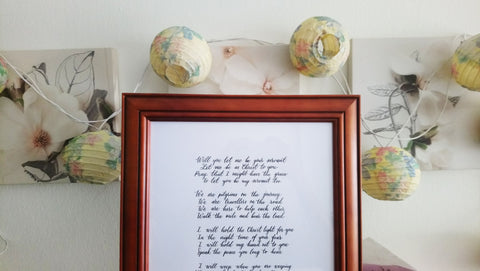 Will you let me be your servant
Let me be as Christ to you
Pray that I might have the grace
to let you be my servant too.
We are pilgrims on the journey
We are travellers on the road
We are here to help each other
Walk the mile and bear the load.
I will hold the Christ light for you
In the night time of your fear
I will hold my hand out to you
Speak the peace you long to hear.
I will weep when you are weeping